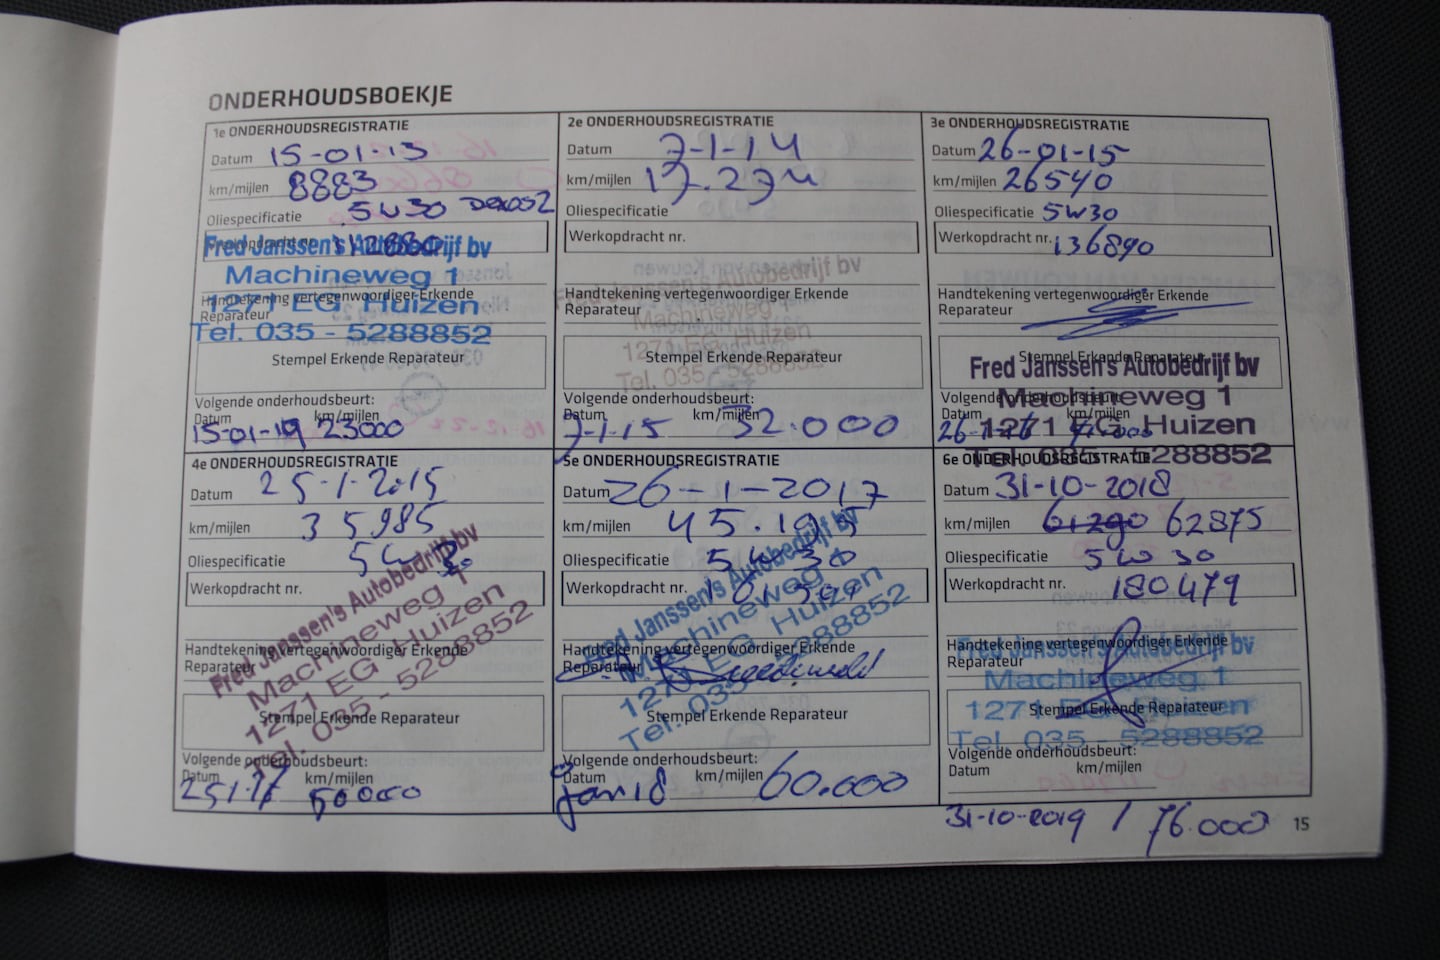 ONDERHOUDSBOEKJE
1e ONDERHOUDSREGISTRATIE
Datum 15-01-13
km/mijlen 8883
Oliespecificatie 5W30
Werkopdracht nr.
Fred Janssen's Autobedrijf bv
Machineweg 1
1271 EG Huizen
Tel. 035 - 5288852
Handtekening vertegenwoordiger Erkende
Reparateur
Stempel Erkende Reparateur
Volgende onderhoudsbeurt:
Datum km/mijlen
15-01-19 23000
2e ONDERHOUDSREGISTRATIE
Datum 7-1-14
km/mijlen 17.274
Oliespecificatie
Werkopdracht nr.
Fred Janssen's Autobedrijf bv
Machineweg 1
1271 EG Huizen
Tel. 035 - 5288852
Handtekening vertegenwoordiger Erkende
Reparateur
Stempel Erkende Reparateur
Volgende onderhoudsbeurt:
Datum km/mijlen
7-1-15 32.000
3e ONDERHOUDSREGISTRATIE
Datum 26-01-15
km/mijlen 26540
Oliespecificatie 5W30
Werkopdracht nr. 136890
Handtekening vertegenwoordiger Erkende
Reparateur
Stempel Erkende Reparateur
Fred Janssen's Autobedrijf bv
Machineweg 1
1271 EG Huizen
Tel. 035 - 5288852
Volgende onderhoudsbeurt:
Datum km/mijlen
4e ONDERHOUDSREGISTRATIE
Datum 25-1-2015
km/mijlen 35985
Oliespecificatie 5W
Werkopdracht nr.
Fred Janssen's Autobedrijf bv
Machineweg 1
1271 EG Huizen
Tel. 035 - 5288852
Handtekening vertegenwoordiger Erkende
Reparateur
Stempel Erkende Reparateur
Volgende onderhoudsbeurt:
Datum km/mijlen
50000
5e ONDERHOUDSREGISTRATIE
Datum 26-1-2017
km/mijlen 45.195
Oliespecificatie 5W30
Werkopdracht nr.
Fred Janssen's Autobedrijf bv
Machineweg 1
1271 EG Huizen
Tel. 035 - 5288852
Handtekening vertegenwoordiger Erkende
Reparateur
Stempel Erkende Reparateur
Volgende onderhoudsbeurt:
Datum km/mijlen
jan 18 60.000
6e ONDERHOUDSREGISTRATIE
Datum 31-10-2018
km/mijlen 61290 62875
Oliespecificatie 5W30
Werkopdracht nr. 180479
Handtekening vertegenwoordiger Erkende
Reparateur
Fred Janssen's Autobedrijf bv
Machineweg 1
1271 EG Huizen
Tel. 035 - 5288852
Stempel Erkende Reparateur
Volgende onderhoudsbeurt:
Datum km/mijlen
31-10-2019 / 76.000
15